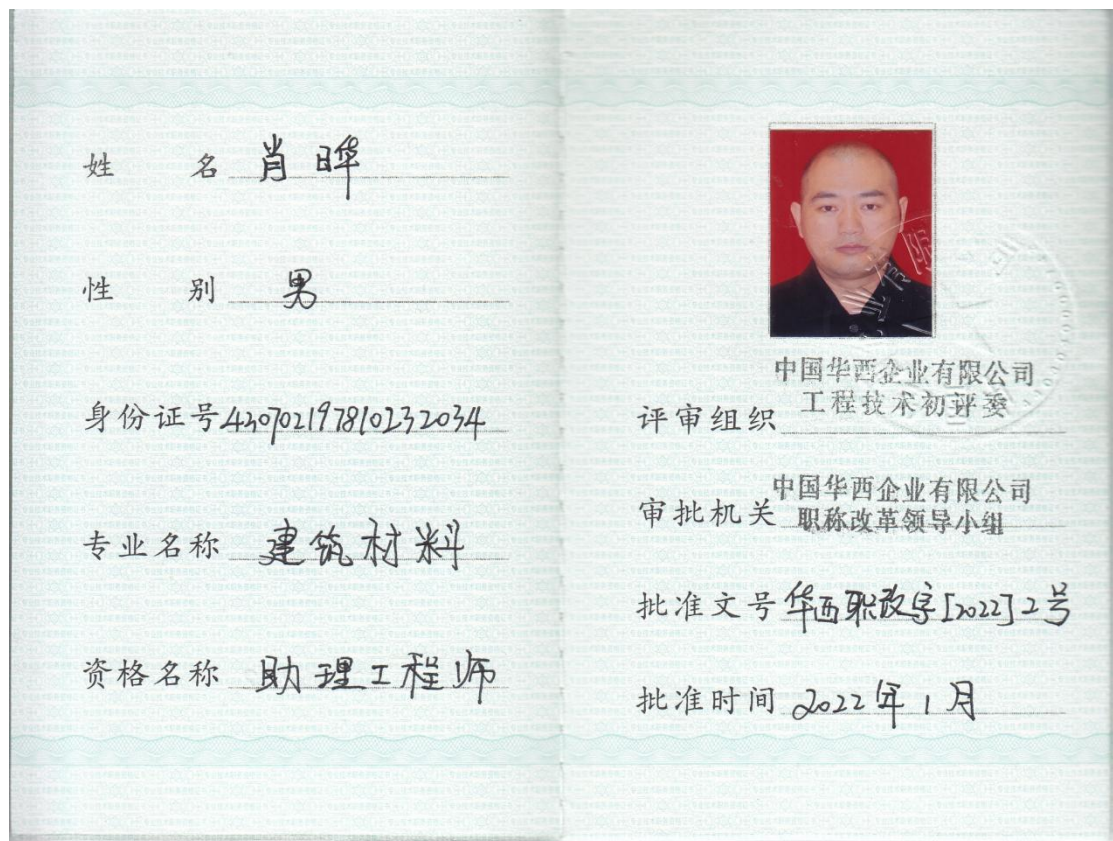 姓名 肖晔
性别 男
身份证号 430702197810232034
专业名称 建筑材料
资格名称 助理工程师
中国华西企业有限公司
评审组织 工程技术初评委
中国华西企业有限公司
审批机关 职称改革领导小组
批准文号 华西职改字[2022]2号
批准时间 2022年1月